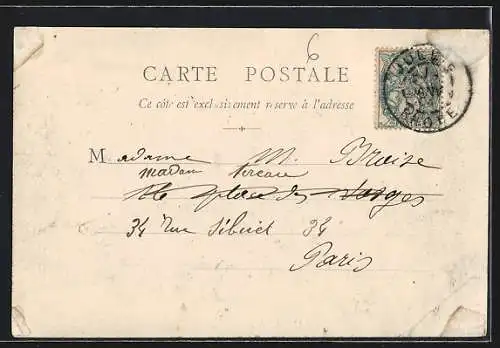 6
CARTE POSTALE
Ce côté est exclusivement réservé à l'adresse
Madame M. Braise
madam
place des Vosges
34 Rue 34
Paris
RHONE